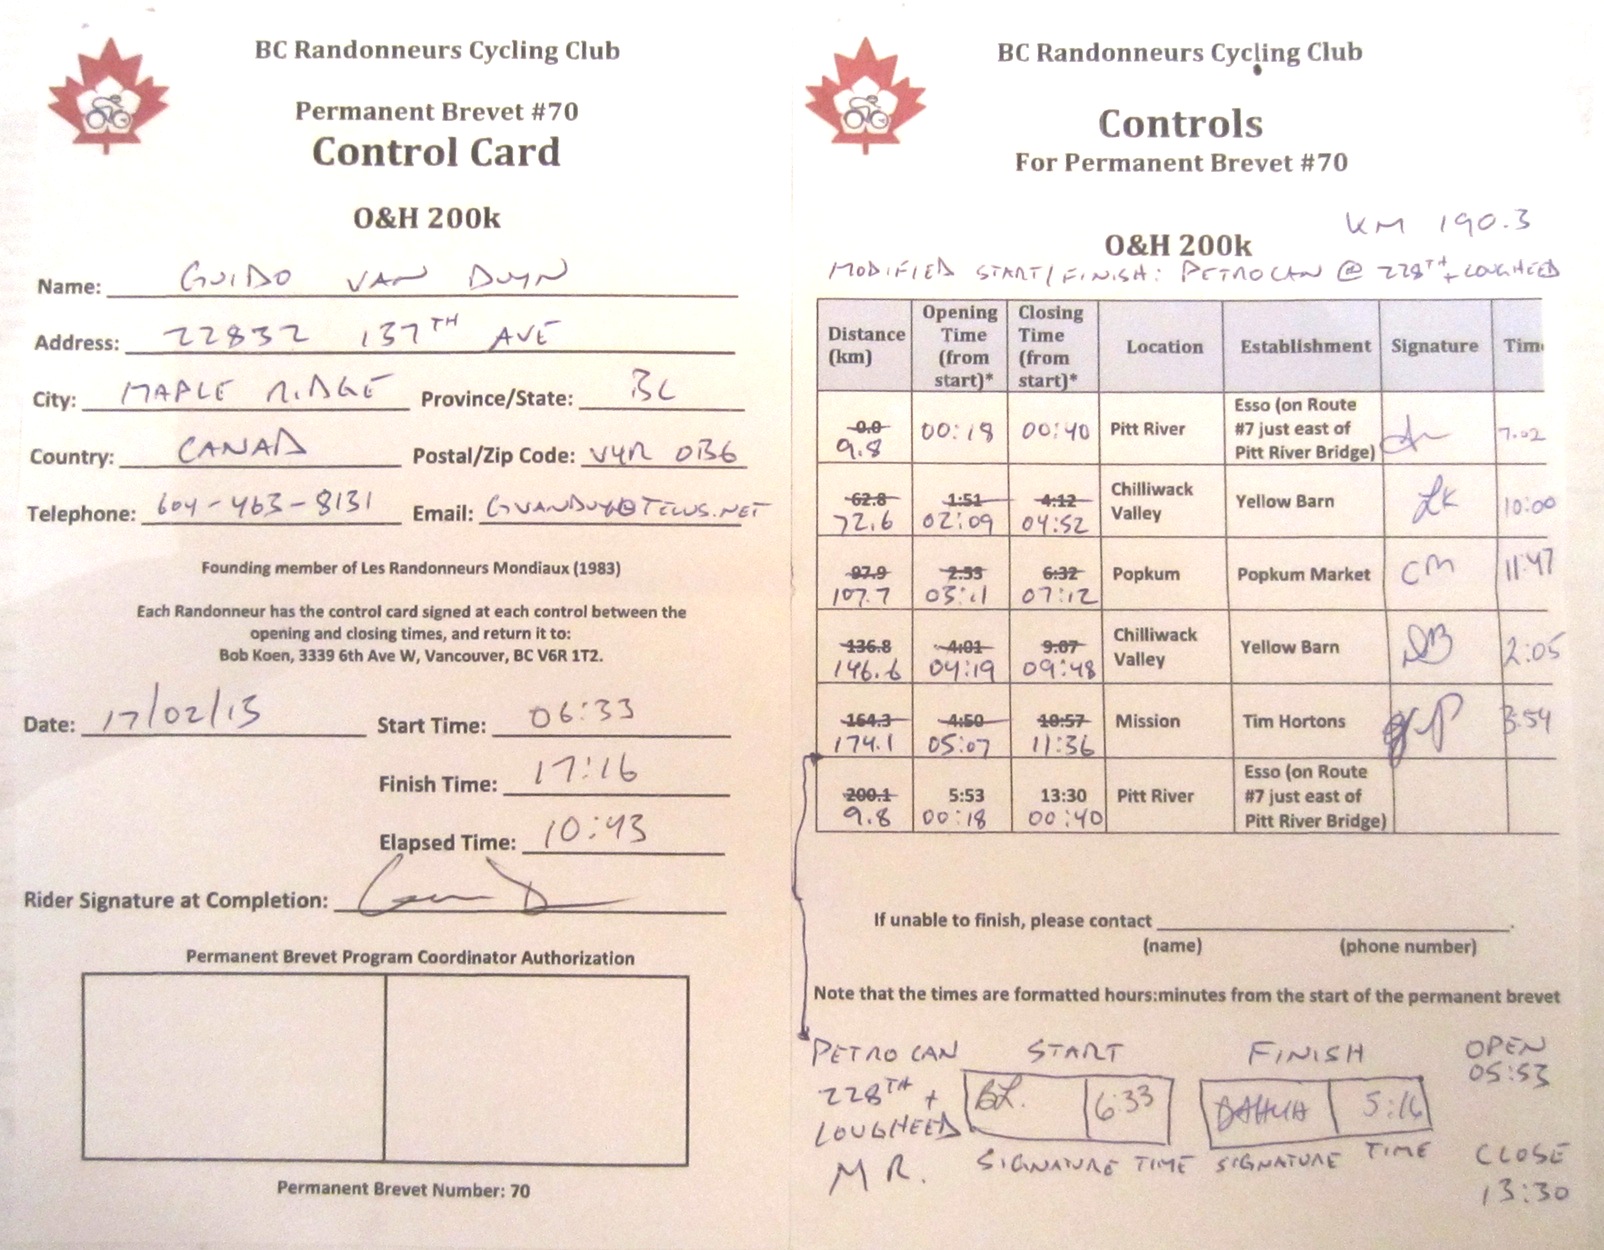 BC Randonneurs Cycling Club
Permanent Brevet #70
Control Card
O&H 200k
Name: GUIDO VAN DUYN
Address: 22832 137TH AVE
City: MAPLE RIDGE Province/State: BC
Country: CANADA Postal/Zip Code: V4R 0B6
Telephone: 604-463-8131 Email: GVANDUYN@TELUS.NET
Founding member of Les Randonneurs Mondiaux (1983)
Each Randonneur has the control card signed at each control between the
opening and closing times, and return it to:
Bob Koen, 3339 6th Ave W, Vancouver, BC V6R 1T2.
Date: 17/02/15 Start Time: 06:33
Finish Time: 17:16
Elapsed Time: 10:43
Rider Signature at Completion:
Permanent Brevet Program Coordinator Authorization
Permanent Brevet Number: 70
BC Randonneurs Cycling Club
Controls
For Permanent Brevet #70
KM 190.3
O&H 200k
MODIFIED START/FINISH: PETROCAN @ 228TH + LOUGHEED
Distance (km) Opening Time (from start)* Closing Time (from start)* Location Establishment Signature Tim
0.0 9.8 00:18 00:40 Pitt River Esso (on Route #7 just east of Pitt River Bridge) 7.02
62.8 72.6 1:51 02:09 4:12 04:52 Chilliwack Valley Yellow Barn LK 10:00
97.9 107.7 2:53 03:11 6:32 07:12 Popkum Popkum Market CM 11:47
136.8 146.6 4:01 04:19 9:07 09:48 Chilliwack Valley Yellow Barn DB 2:05
164.3 174.1 4:50 05:07 10:57 11:36 Mission Tim Hortons 3:54
200.1 9.8 5:53 00:18 13:30 00:40 Pitt River Esso (on Route #7 just east of Pitt River Bridge)
If unable to finish, please contact
(name) (phone number)
Note that the times are formatted hours:minutes from the start of the permanent brevet
PETRO CAN START FINISH OPEN
05:53
228TH + BL. 6:33 5:16
LOUGHEED
M R. SIGNATURE TIME SIGNATURE TIME CLOSE
13:30